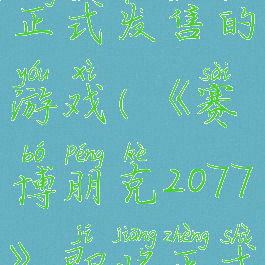 正式发售的
yóu xì sài
游戏(《赛
bó péng kè
博朋克2077
jí jiāng zhèng shì